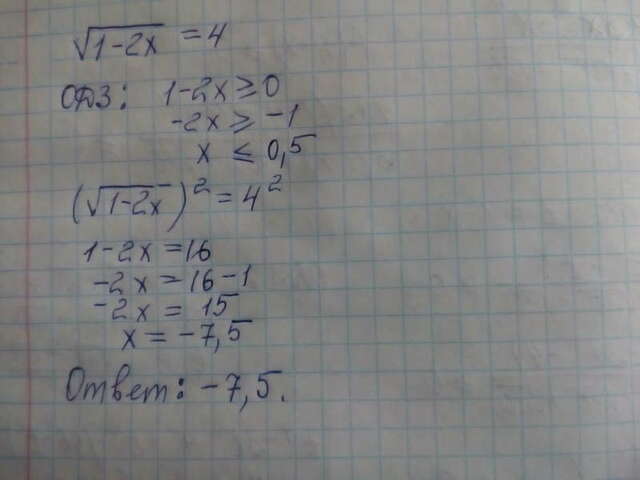 √1-2x = 4
ОДЗ: 1-2x ≥ 0
-2x ≥ -1
x ≤ 0,5
(√1-2x)² = 4²
1-2x = 16
-2x = 16-1
-2x = 15
x = -7,5
Ответ: -7,5.